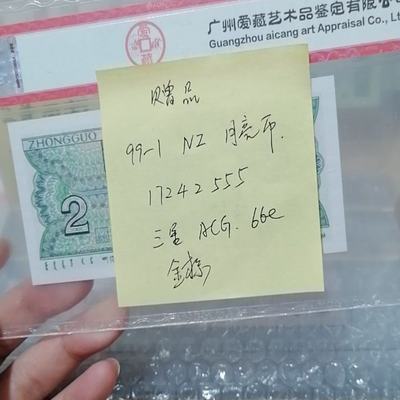 广州爱藏艺术品鉴定有限公
Guangzhou aicang art Appraisal Co., Lt
爱藏
ZHONGGUO
赠品
99-1 NZ 月亮币.
2
17242555
三星 ACG. 66e
金标